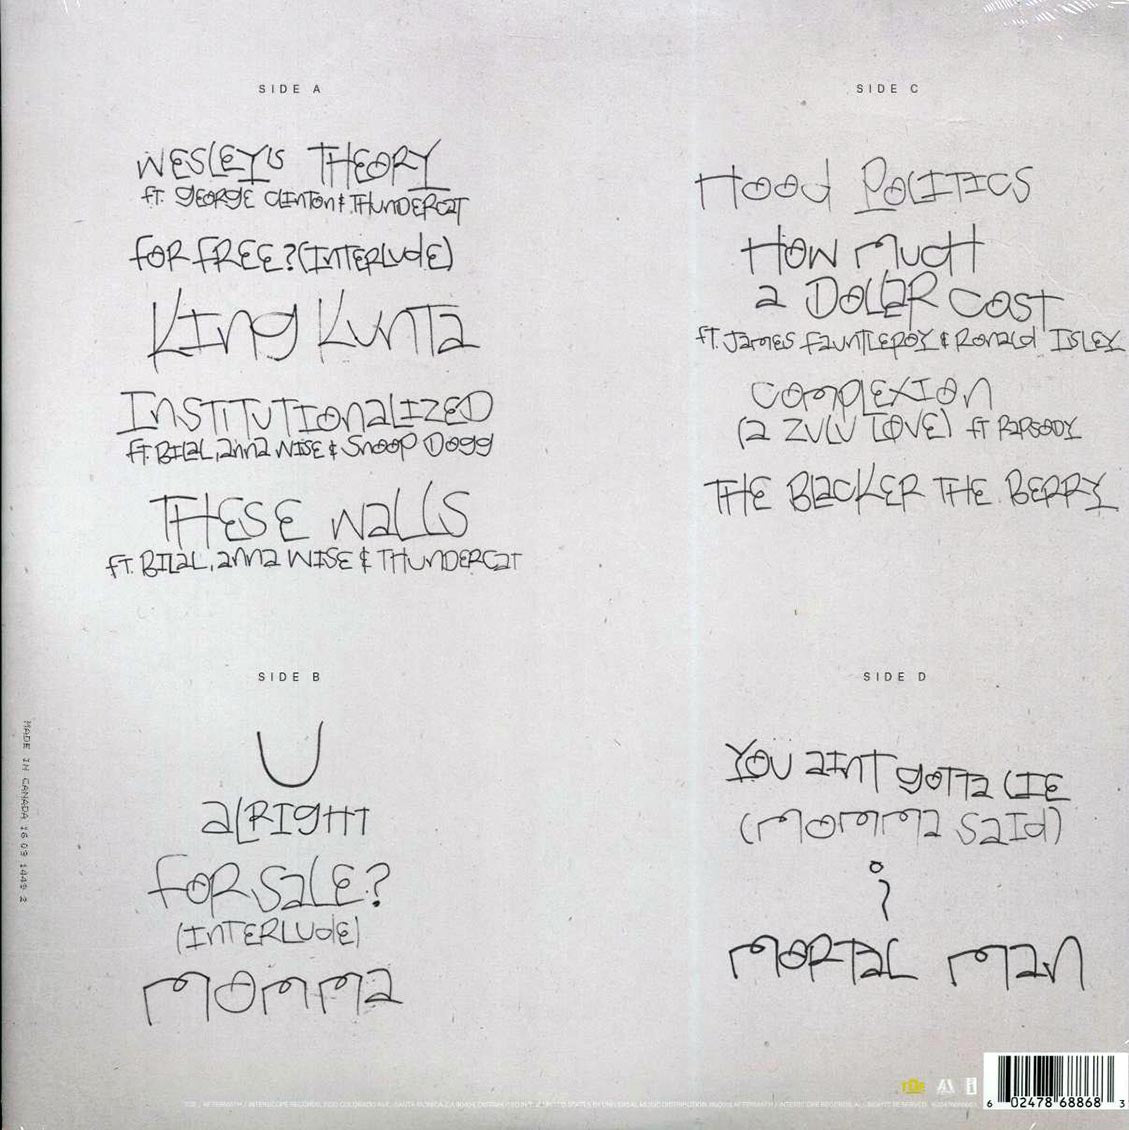 SIDE A
WESLEY'S THEORY
ft. GEORGE CLINTON & THUNDERCAT
FOR FREE? (INTERLUDE)
KING KUNTA
INSTITUTIONALIZED
ft. BILAL, ANNA WISE & SNOOP DOGG
THESE WALLS
ft. BILAL, ANNA WISE & THUNDERCAT
SIDE B
U
ALRIGHT
FOR SALE?
(INTERLUDE)
MOMMA
SIDE C
HOOD POLITICS
HOW MUCH
A DOLLAR COST
ft. JAMES FAUNTLEROY & RONALD ISLEY
COMPLEXION
(A ZULU LOVE) ft RAPSODY
THE BLACKER THE BERRY
SIDE D
YOU AINT GOTTA LIE
(MOMMA SAID)
i
MORTAL MAN
MADE IN CANADA 16 09 1449 2
TDE
6 02478 68868 3